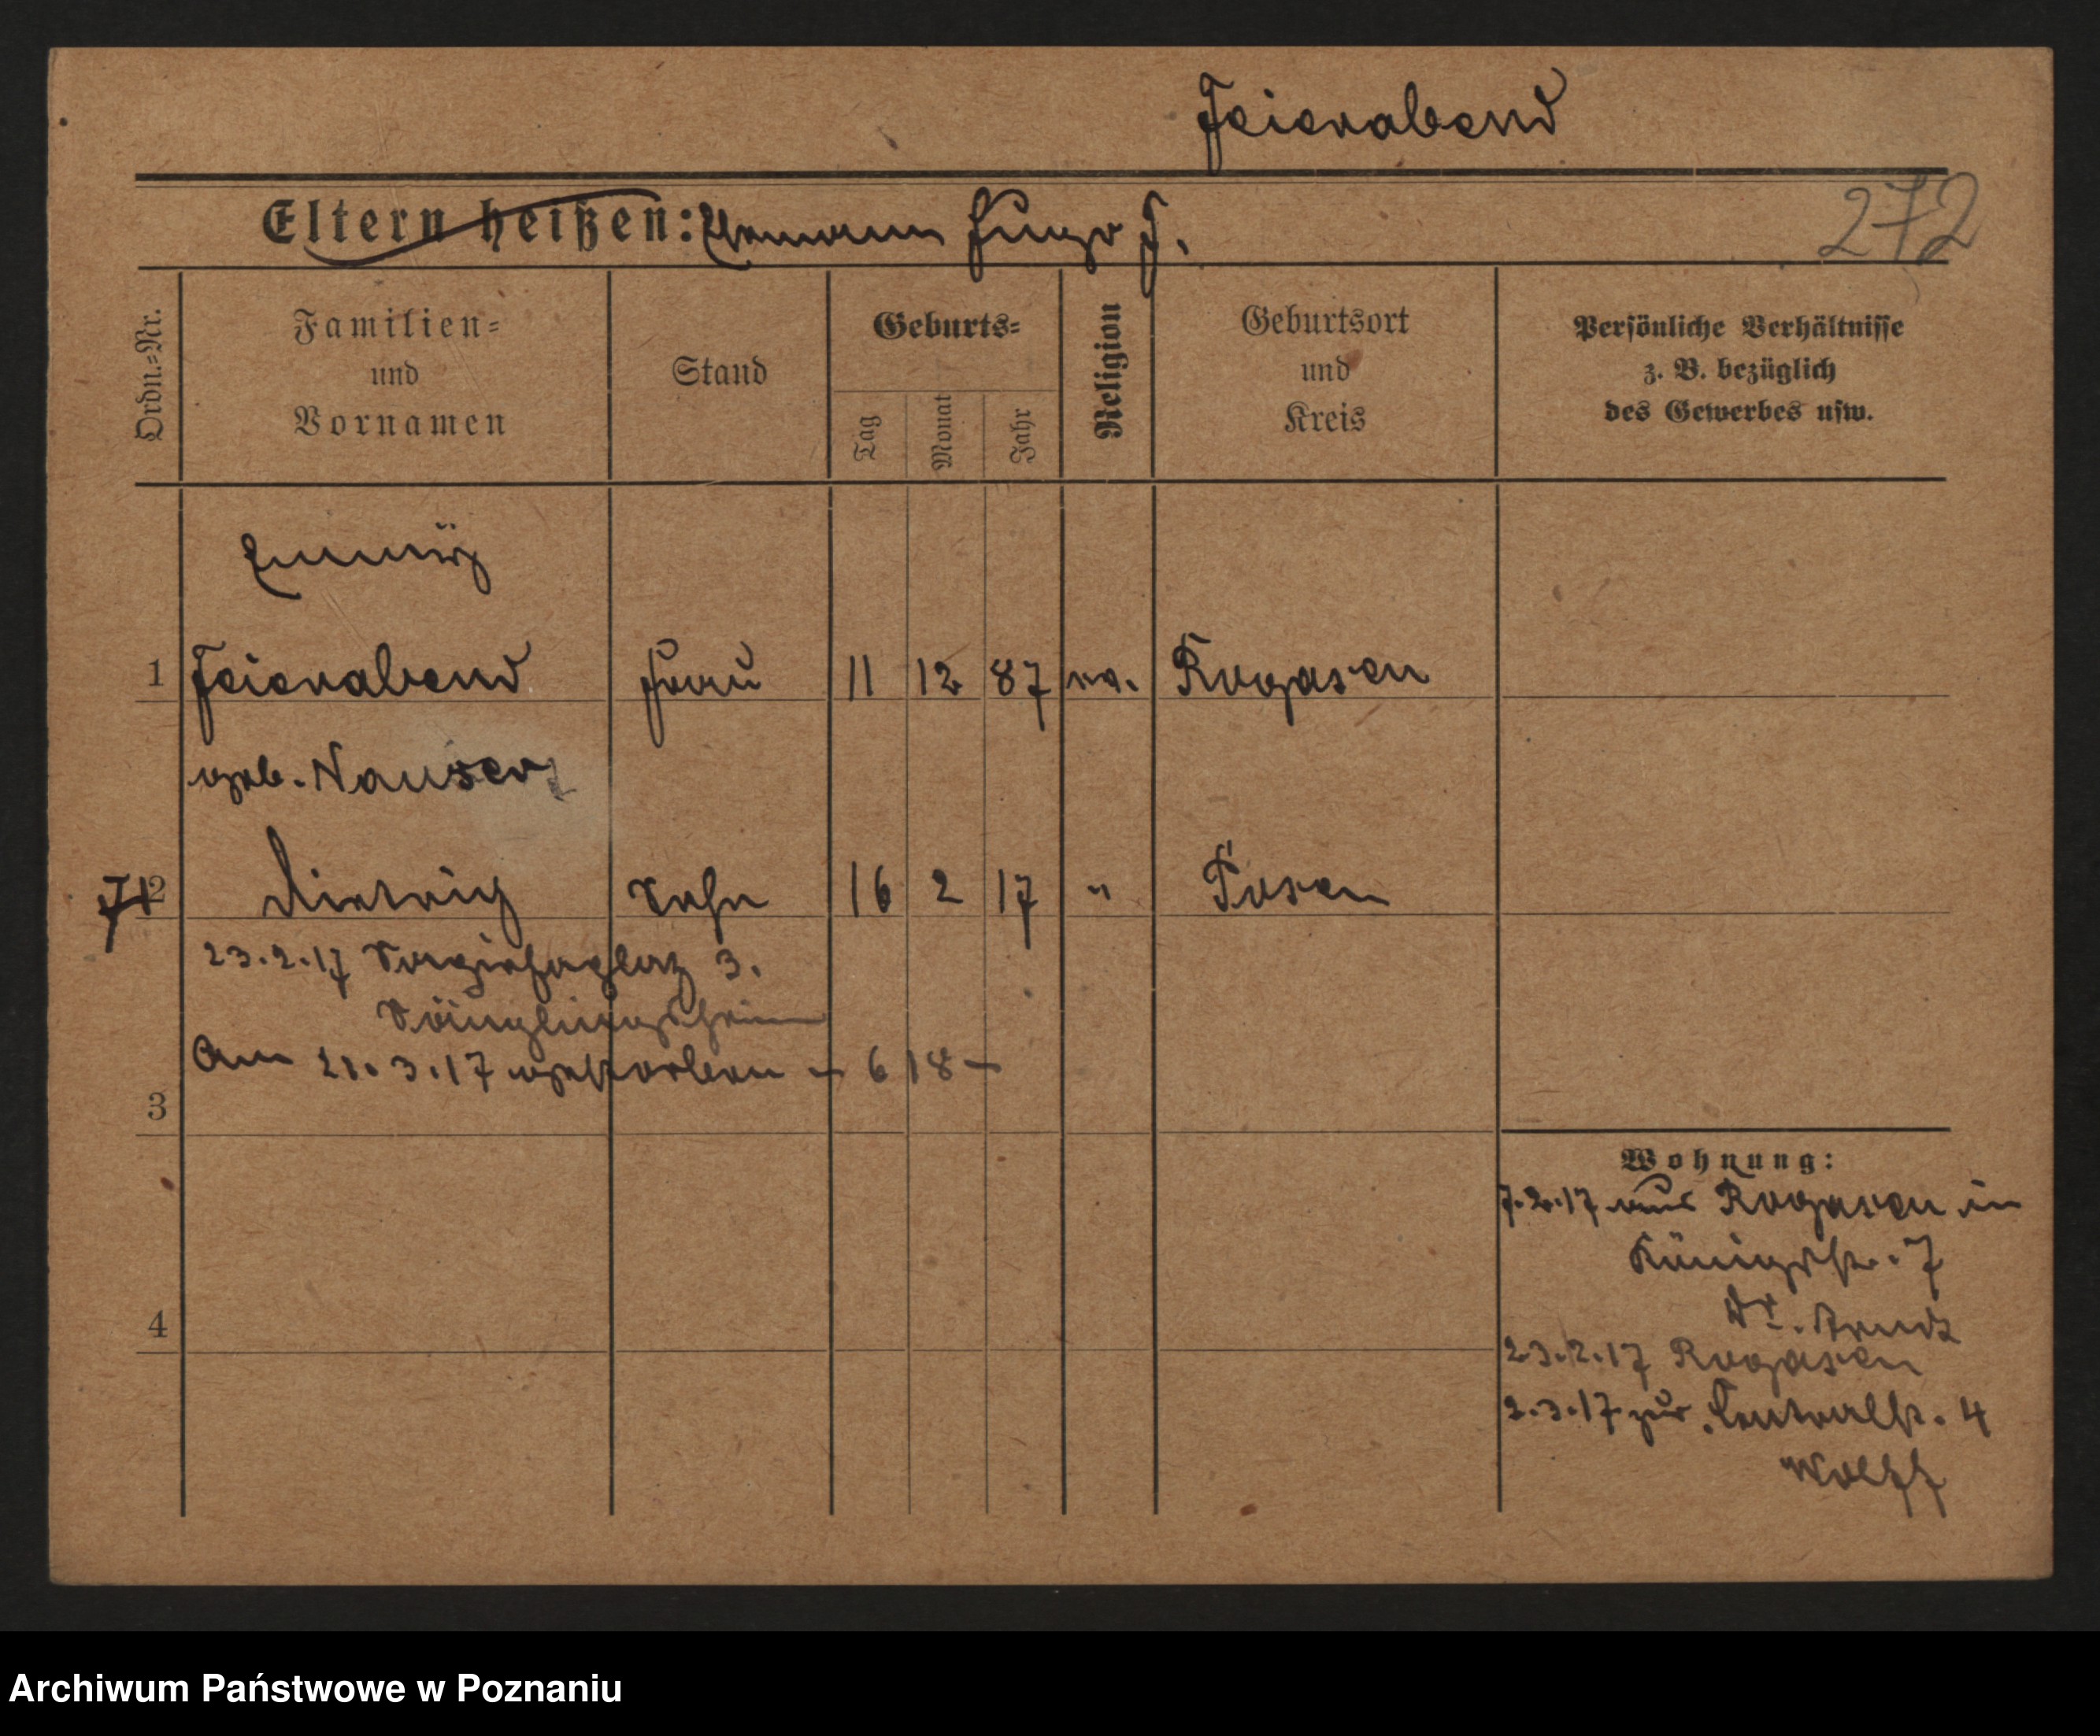 Feierabend
Eltern heißen: Ehemann Hugo F.
272
Ordn.-Nr.
Familien-
und
Vornamen
Stand
Geburts-
Tag
Monat
Jahr
Religion
Geburtsort
und
Kreis
Persönliche Verhältnisse
z. B. bezüglich
des Gewerbes usw.
1 Feierabend Frau 11 12 87 ev. Rogasen
geb. Nauser
2 Sohn 16 2 17 " Posen
23.2.17 3.
Säuglingsheim
Am 21.3.17 gestorben – 618 –
3
4
Wohnung:
7.2.17 aus Rogasen in
Königstr. 7
Dr. Arndt
23.2.17 Rogasen
2.3.17 zur. 4
Wolff
Archiwum Państwowe w Poznaniu